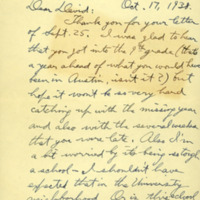 Dear David: Oct. 17, 1938.
Thank you for your letter
of Sept. 25. I was glad to hear
that you got into the 9th grade, (that's
a year ahead of what you would have
been in Austin, isn't it?) but
hope it won't be so very hard
catching up with the missing year
and also with the several weeks
that you were late. Also I'm
a bit worried by its being so tough
a school – I shouldn't have
expected that in the University
neighborhood. Or is this school